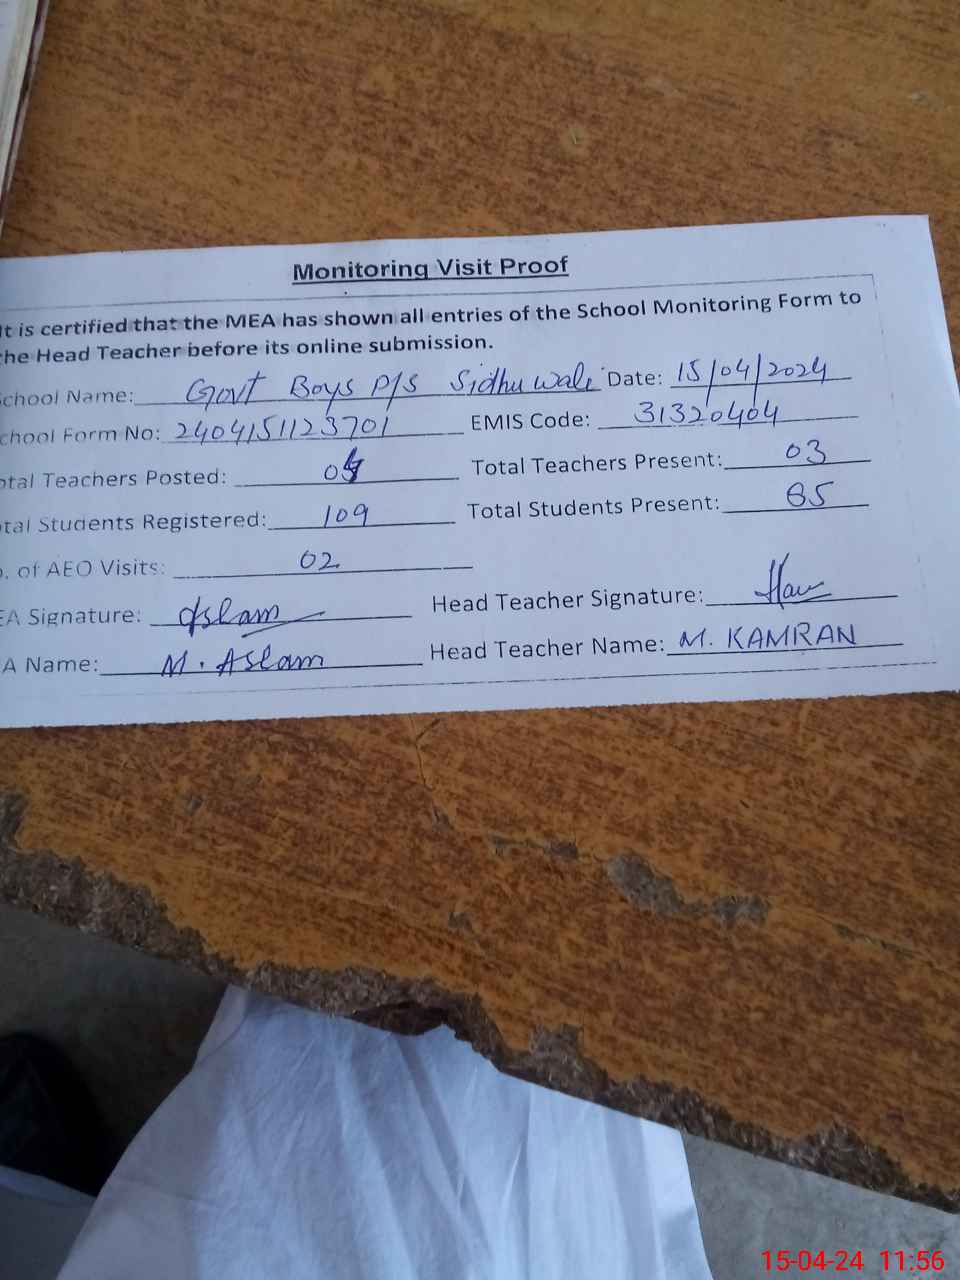 Monitoring Visit Proof
It is certified that the MEA has shown all entries of the School Monitoring Form to
the Head Teacher before its online submission.
School Name: Govt Boys P/S Sidhu wali Date: 15/04/2024
chool Form No: 2404151123701 EMIS Code: 31320404
otal Teachers Posted: Total Teachers Present: 03
otal Students Registered: 109 Total Students Present: 85
o. of AEO Visits: 02
EA Signature: Aslam Head Teacher Signature:
A Name: M. Aslam Head Teacher Name: M. KAMRAN
15-04-24 11:56